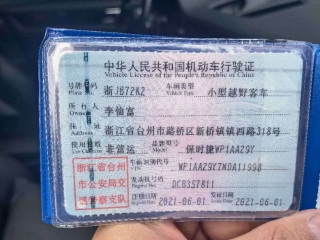 中华人民共和国机动车行驶证
Vehicle License of the People's Republic of China
号牌号码 浙JB72K2 车辆类型 小型越野客车
Plate No. Vehicle Type
所有人 李仙富
Owner
住址 浙江省台州市路桥区新桥镇镇西路318号
Address
使用性质 非营运 品牌型号 保时捷WP1AA29Y
浙江省台州市公安局交通警察支队
车辆识别代号 WP1AA29Y7NDA11998
发动机号码 DCB3S7811
Engine No.
注册日期 2021-06-01 发证日期 2021-06-01
Register Date Issue Date